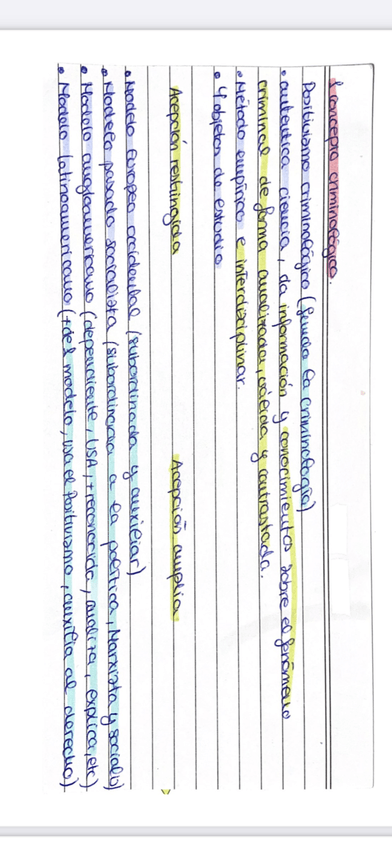 1 concepto criminológico.
Positivismo criminológico (funda la criminología)
• auténtica ciencia, da información y conocimientos sobre el fenómeno
criminal de forma analizada, válida y contrastada.
• Método empírico e interdisciplinar.
• 4 objetos de estudio
Acepción restringida Acepción amplia
• Modelo Europeo occidental (subordinada y auxiliar)
• Modelo pasado socialista (subordinada a la política, Marxista y social)
• Modelo angloamericano (dependiente, USA, + reconocida, analiza, explica, etc)
• Modelo latinoamericano (+ del modelo, usa el Positivismo, auxilia al derecho)